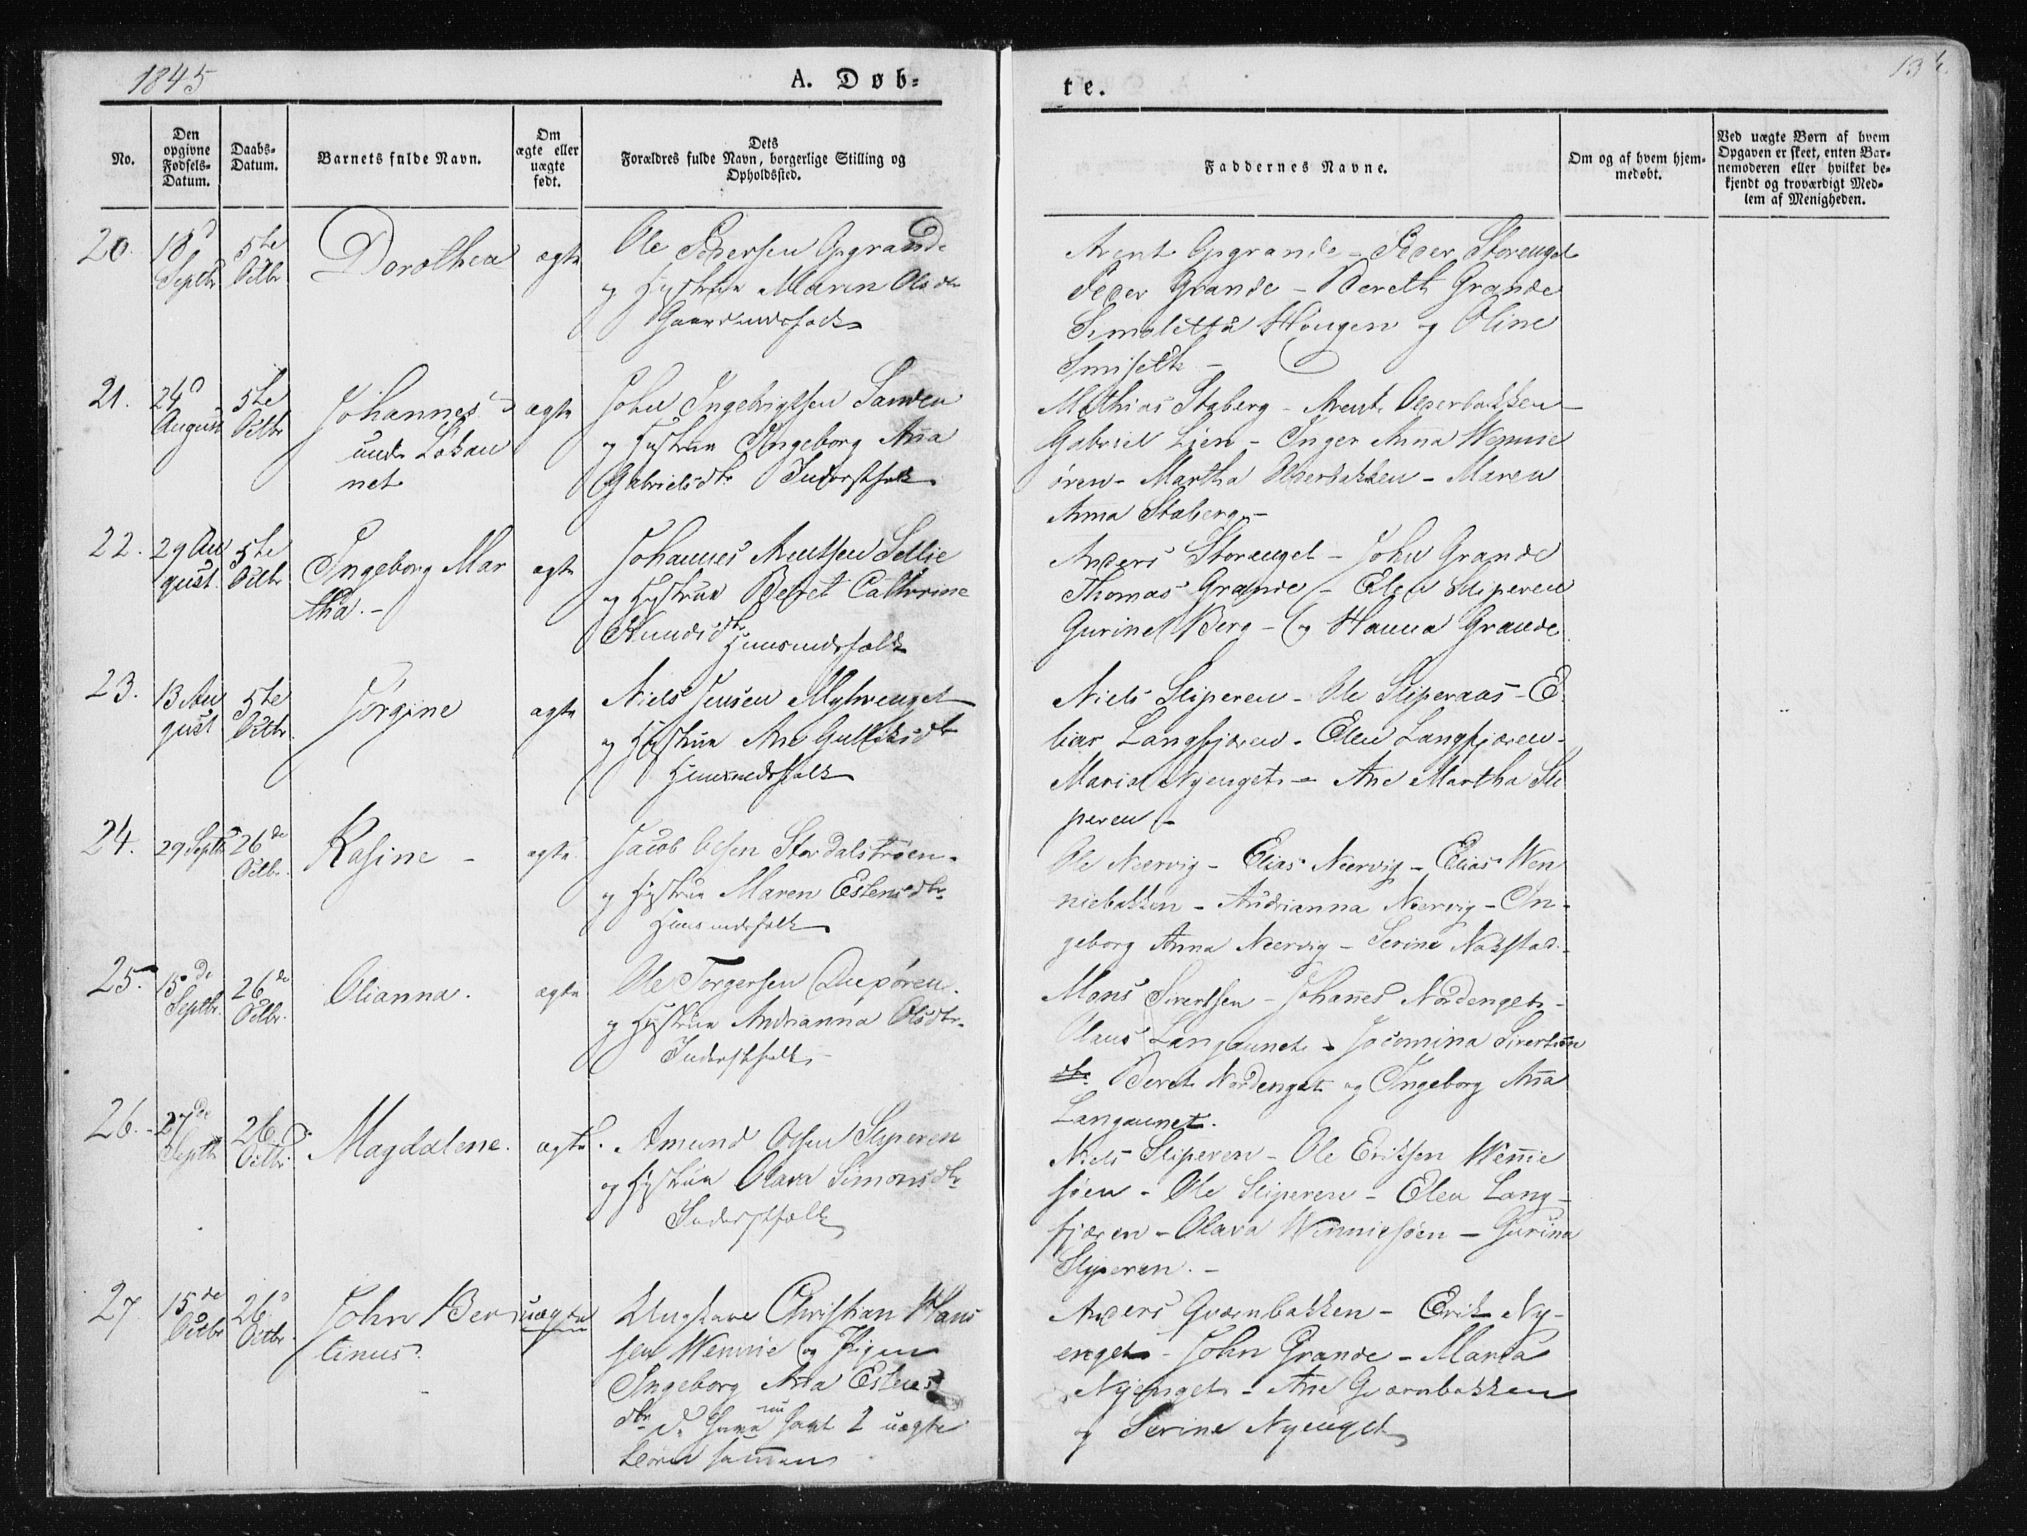 1845
A. Døb=
te.
134.
No.
Den opgivne Fødsels-Datum.
Daabs-Datum.
Barnets fulde Navn.
Om ægte eller uægte født.
Dets Forældres fulde Navn, borgerlige Stilling og Opholdssted.
Faddernes Navne.
Om og af hvem hjemmedøbt.
Ved uægte Børn af hvem Opgaven er skeet, enten Barnemoderen eller hvilket bekjendt og troværdigt Medlem af Menigheden.
20. 18d Septbr 5te Octbr Dorothea ægte
Ole Pedersen Opgrande
og Hustrue Maren Olsdtr
Gaardmandsfolk
Arent Opgrande - Peder Storenget
Peder Grande - Bereth Grande
Haugen og Oline
21. 24d August 5te Octbr Johannes
net
ægte
John Ingebrigtsen Sanden
og Hustrue Ingeborg Ana
Gabrielsdtr Inderstfolk
Mathias Staberg - Arent Overbakken -
Gabriel Lien - Inger Anna Wennie
øren - Martha Overbakken - Maren
Anna Staberg -
22. 29 Au
gust 5te Octbr Ingeborg Mar
tha. -
ægte
Johannes Arntsen Sellie
og Hustrue Beret Cathrine
Knudsdtr Huusmandsfolk
Anders Storenget - John Grande
Thomas Grande - Elen Sliperen
Gurine Berg - og Hanna Grande
23. 13 Au
gust 5te Octbr Jørgine ægte
Niels Jensen Myhrenget
og Hustrue Ane Gulliksdtr
Huusmandsfolk
Niels Sliperen - Ole Sliperaas - E
lias Langfjæren - Elen Langfjæren -
Maria Nyenget - Ane Martha Sli
peren -
24. 29 Septbr 26de Octbr. Rasine - ægte
Jacob Olsen Stordalstrøen -
og Hustrue Maren Estensdtr
Huusmandsfolk
Ole Neervig - Elias Neervig - Elias Wen
niebakken - Andrianna Neervig - In-
geborg Anna Neervig - Serine Nakstad -
25. 15de Septbr. 26de Octbr. Olianna. ægte
Ole Torgersen Diupøren.
og Hustrue Andrianna Olsdtr.
Inderstfolk
Mons Sivertsen - Johanes Nordenget -
Olaus Langaunet - Jocomina Sivertsen
Beret Nordenget og Ingeborg Ana
Langaunet.
26. 27de Septbr 26d. Octbr. Magdalene. ægte.
Amund Olsen Slyperen
og Hustrue Olava Simonsdtr
Inderstfolk
Niels Sliperen - Ole Eriksen Wenie
søen - Ole Sliperen - Elen Lang-
fjæren - Olava Wenniesøen - Gurina
Slyperen. -
27 15de Octbr 26d Octbr. John Ber
tinus.
uægte
Ungkarl Christian Hans
sen Wennie og Pigen
Ingeborg Ana Estens
dtr. De have nu havt 2 uægte
Børn sammen
Anders Qværnbakken - Erik Ny-
enget - John Grande - Maria
Nyenget - Ane Qværnbakken
og Serine Nyenget